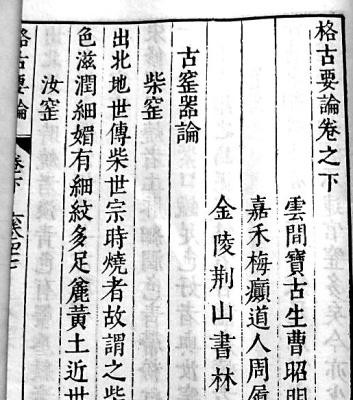 格古要論卷之下
雲間寶古生曹昭明
嘉禾梅癲道人周履
金陵荆山書林
古窑器論
柴窑
出北地世傳柴世宗時燒者故謂之柴
色滋潤細媚有細紋多足麄黃土近世
汝窑
格古要論
卷下